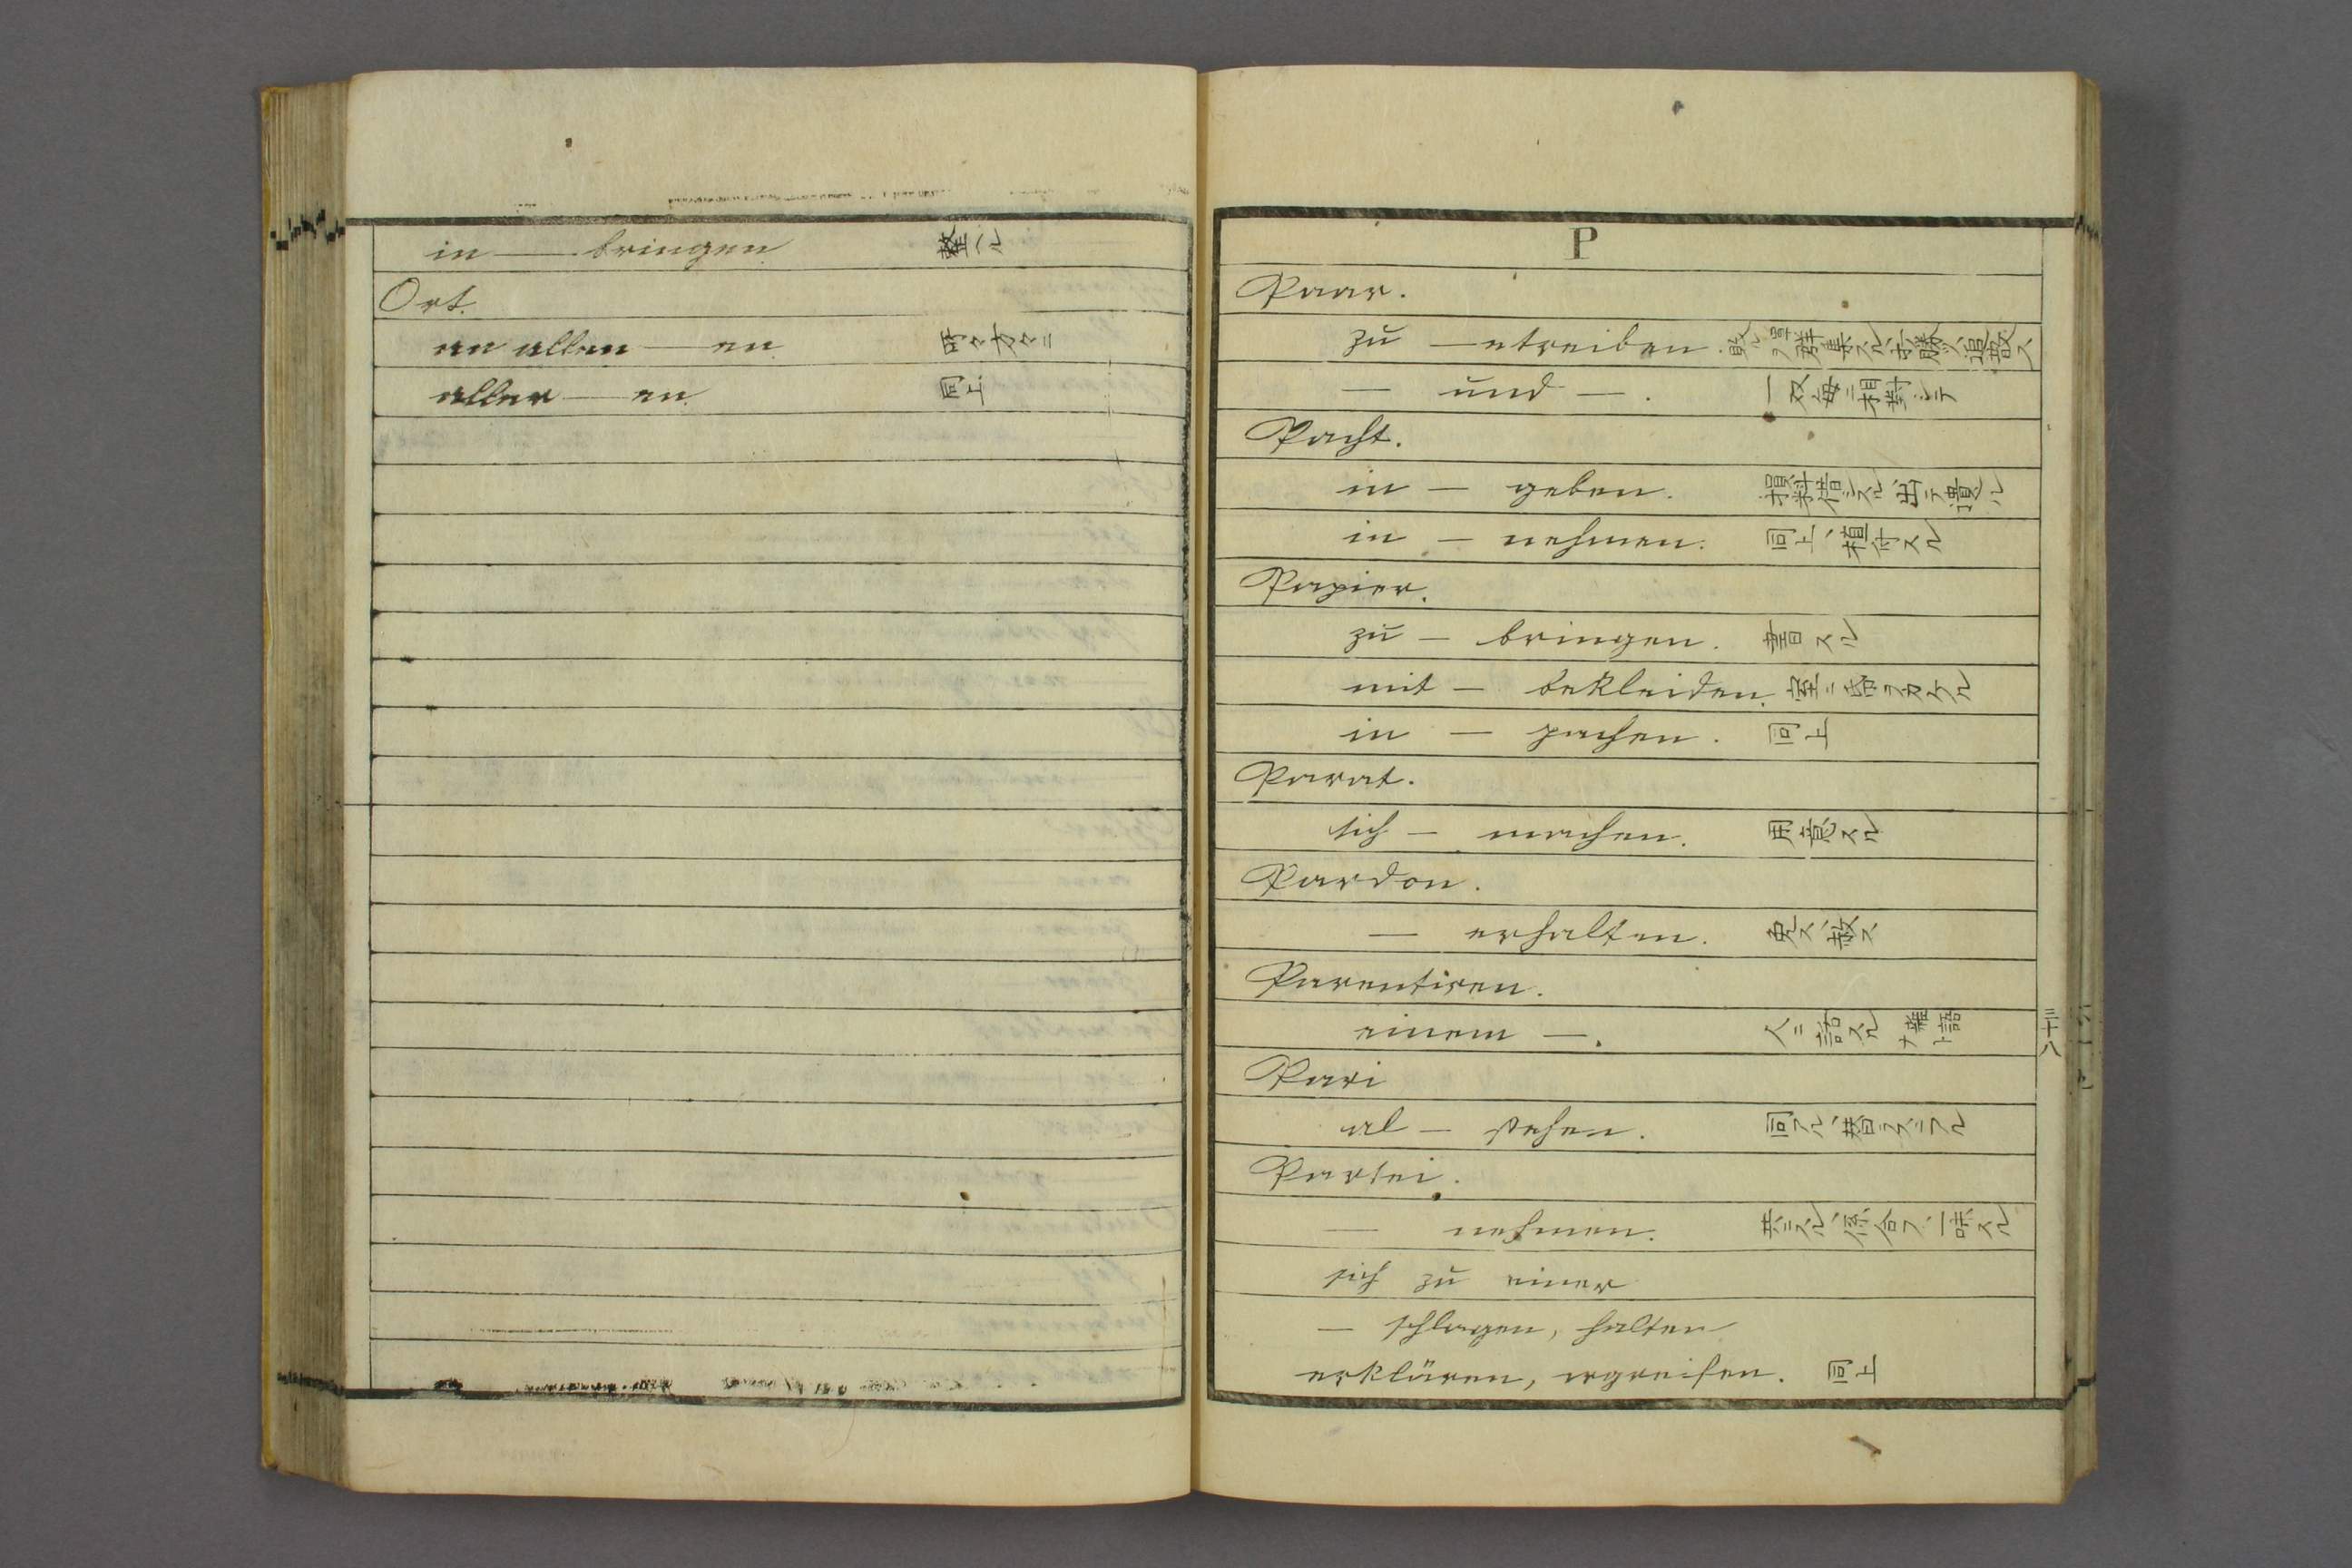 in — bringen 整ヘル
Ort.
an allen — en 所々方々ニ
aller — en 同上
P
Paar.
zu — etreiben
— und —. 一双毎ニ相對シテ
Pacht.
in — geben.
in — nehmen. 同上、植付スル
Papier.
zu — bringen. 書スル
mit — bekleiden. 室ニ帋ヲカケル
in — pachen. 同上
Parat.
sich — machen. 用意スル
Pardon.
— erhalten. 免ス、赦ス
Parentiren.
einem —. 人ニ語スル
Pari
al — stehen.
Partei.
— nehmen.
sich zu einer
— schlagen, halten
erklären, ergreifen. 同上
三十八